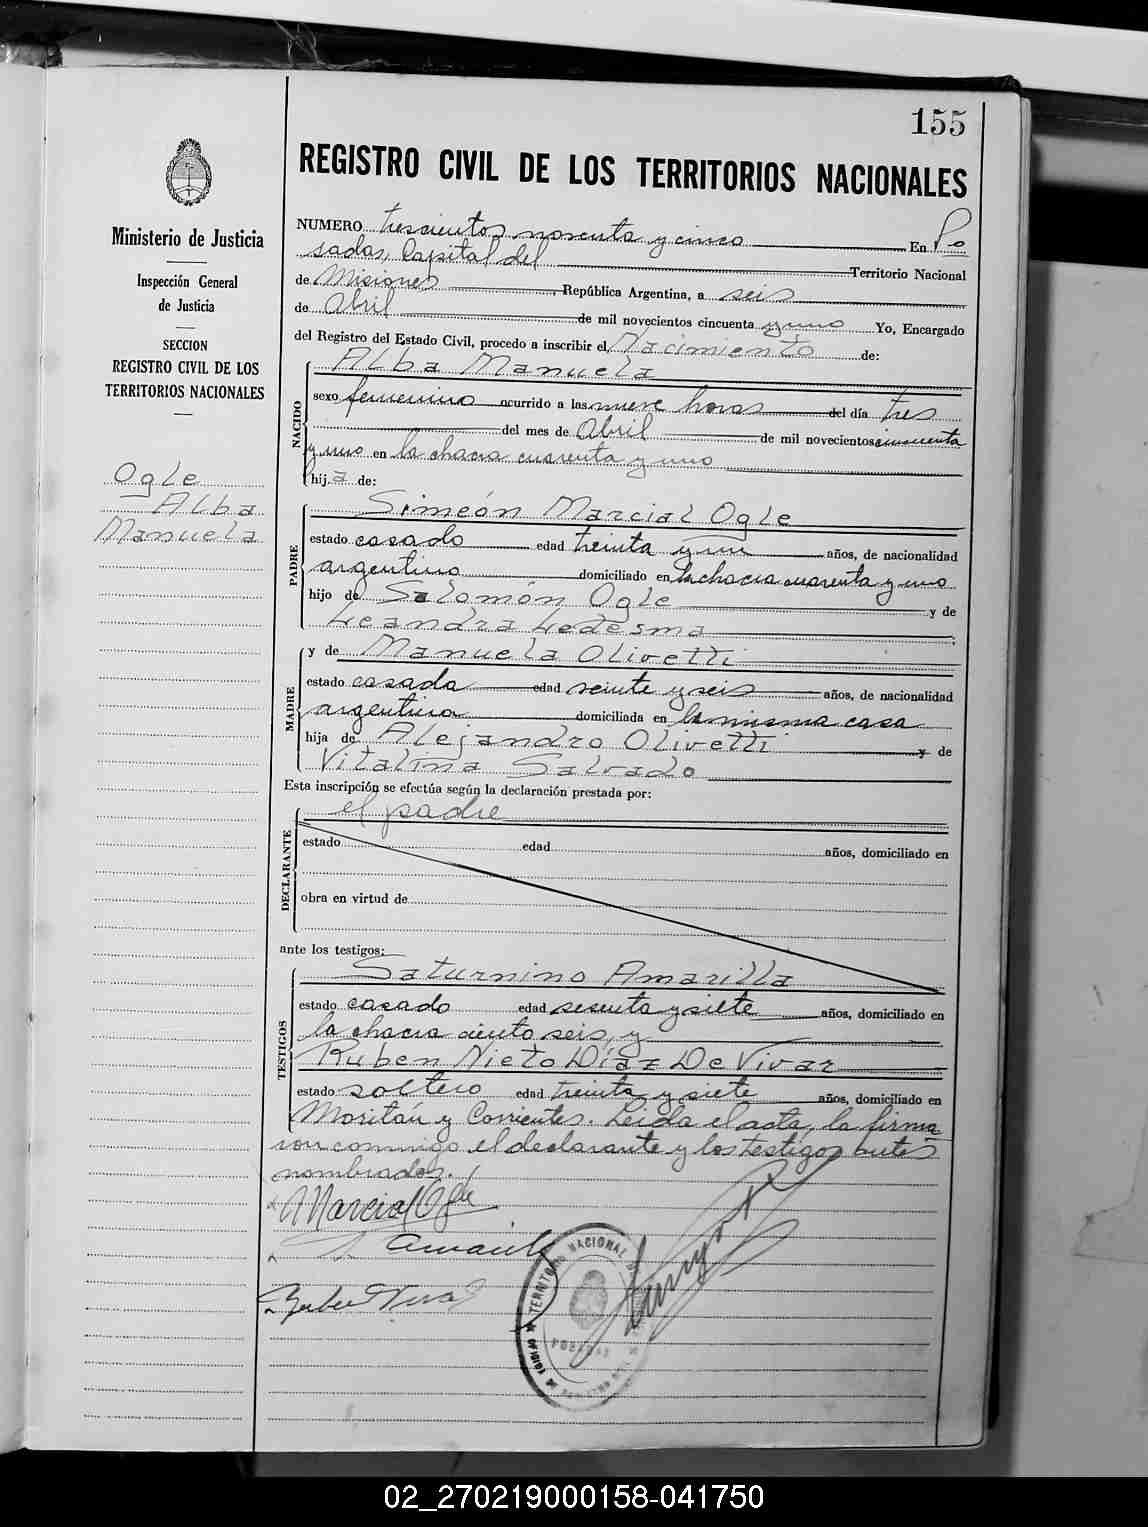 155
REGISTRO CIVIL DE LOS TERRITORIOS NACIONALES
Ministerio de Justicia
Inspección General
de Justicia
SECCION
REGISTRO CIVIL DE LOS
TERRITORIOS NACIONALES
Ogle
Alba
Manuela
NUMERO trescientos noventa y cinco En Po
sadas, Capital del Territorio Nacional
de Misiones, República Argentina, a seis
de Abril de mil novecientos cincuenta y uno Yo, Encargado
del Registro del Estado Civil, procedo a inscribir el Nacimiento de:
Alba Manuela
NACIDO
sexo femenino ocurrido a las nueve horas del día tres
del mes de Abril de mil novecientos cincuenta
y uno en la chacra cuarenta y uno
hija de:
Simeón Marcial Ogle
PADRE
estado casado edad treinta y un años, de nacionalidad
argentino domiciliado en la chacra cuarenta y uno
hijo de Salomón Ogle y de
Leandra Ledesma
y de Manuela Olivetti
MADRE
estado casada edad veinte y seis años, de nacionalidad
argentina domiciliada en la misma casa
hija de Alejandro Olivetti y de
Vitalina Salvado
Esta inscripción se efectúa según la declaración prestada por:
el padre
DECLARANTE
estado edad años, domiciliado en
obra en virtud de
ante los testigos:
Saturnino Amarilla
TESTIGOS
estado casado edad sesenta y siete años, domiciliado en
la chacra ciento seis, y
Ruben Nieto Díaz De Vivar
estado soltero edad treinta y siete años, domiciliado en
Moritán y Corrientes. Leída el acta, la firma
ron conmigo el declarante y los testigos antes
nombrados.
Marcial Ogle
TERRITORIO NACIONAL
POSADAS
02_270219000158-041750